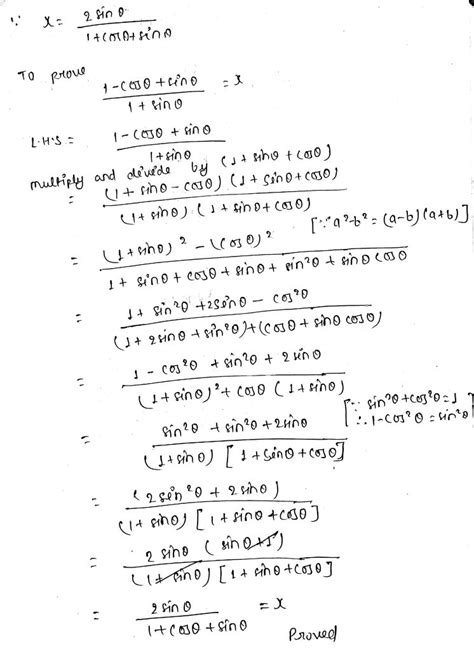 ∵ x = 2 sin θ / 1 + cosθ + sin θ
To prove
1 - cosθ + sinθ / 1 + sinθ = x
L.H.S = 1 - cosθ + sinθ / 1 + sinθ
multiply and divide by (1 + sinθ + cosθ)
= (1 + sinθ - cosθ) (1 + sinθ + cosθ) / (1 + sinθ) (1 + sinθ + cosθ)
[∵ a² - b² = (a-b) (a+b)]
= (1 + sinθ)² - (cosθ)² / 1 + sinθ + cosθ + sinθ + sin²θ + sinθ cosθ
= 1 + sin²θ + 2sinθ - cos²θ / (1 + 2sinθ + sin²θ) + (cosθ + sinθ cosθ)
= 1 - cos²θ + sin²θ + 2 sinθ / (1 + sinθ)² + cosθ (1 + sinθ)
[∵ sin²θ + cos²θ = 1
∴ 1 - cos²θ = sin²θ]
= sin²θ + sin²θ + 2sinθ / (1 + sinθ) [1 + sinθ + cosθ]
= (2 sin²θ + 2 sinθ) / (1 + sinθ) [1 + sinθ + cosθ]
= 2 sinθ (sinθ + 1) / (1 + sinθ) [1 + sinθ + cosθ]
= 2 sinθ / 1 + cosθ + sinθ = x
Proved